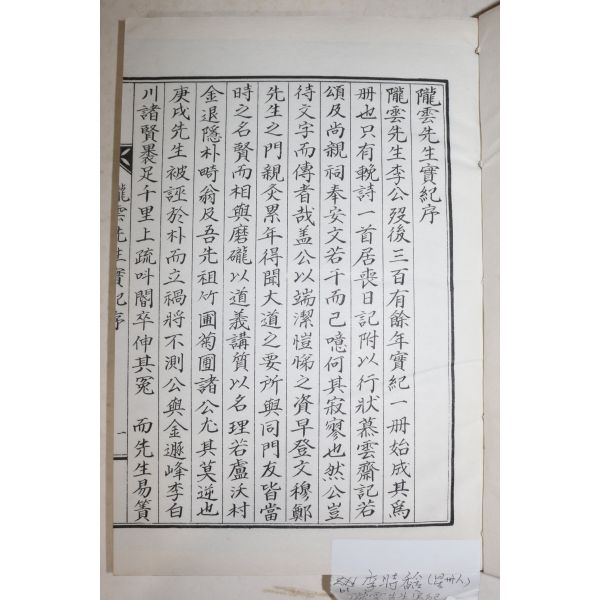 隴雲先生實紀序
隴雲先生李公歿後三百有餘年實紀一册始成其爲
册也只有輓詩一首居喪日記附以行狀慕雲齋記若
頌及尚親祠奉安文若干而已噫何其寂寥也然公豈
待文字而傳者哉盖公以端潔愷悌之資早登文穆鄭
先生之門親炙累年得聞大道之要所與同門友皆當
時之名賢而相與磨礲以道義講質以名理若盧沃村
金退隱朴畸翁及吾先祖竹圃菊圃諸公尤其莫逆也
庚戌先生被誣於朴而立禍將不測公與金遯峰李白
川諸賢裹足千里上疏叫閤卒伸其冤 而先生易簀
隴雲先生實紀序
一
李時馠(星州人)
隴雲先生實紀